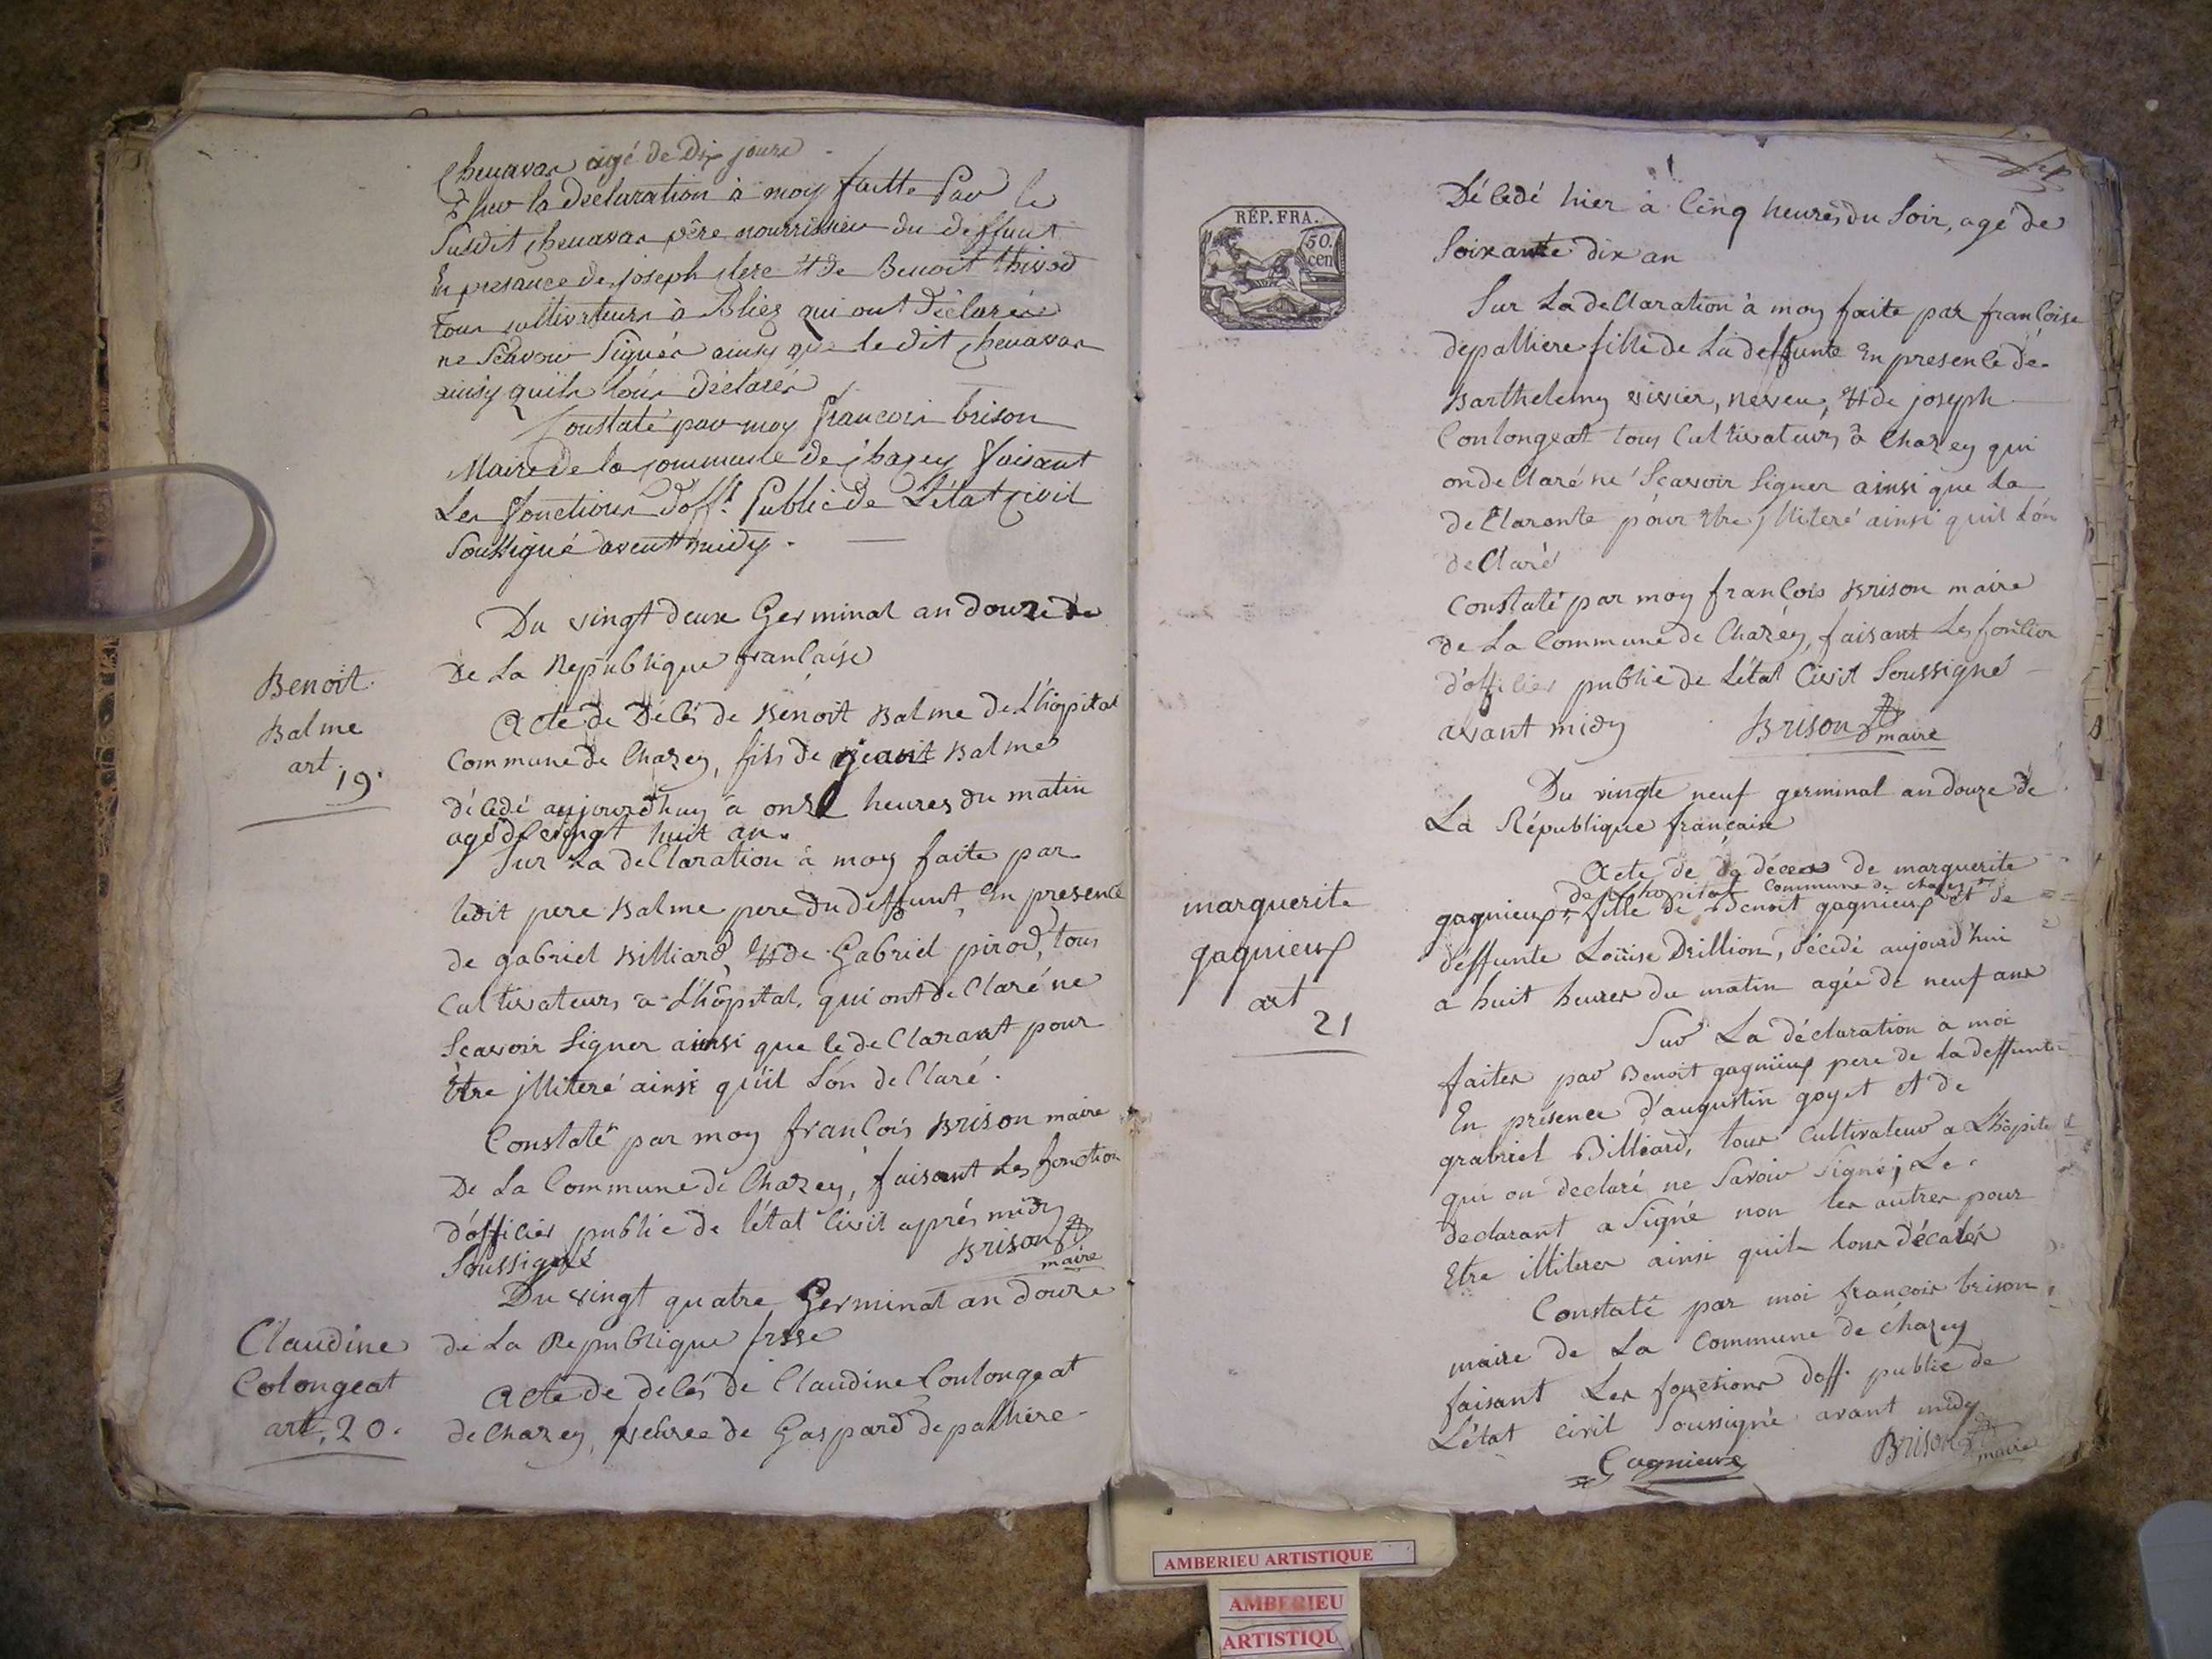 Chenavar agé de Dix jours
Sur la declaration à moy faitte Par le
Susdit Chenavar père nourrissieu du deffunt
En presance de joseph clere & de Benoit thivod
tous cultivateurs à Bliez qui ont déclarée
ne Scavoir Signér ainsy que le dit Chenavar
ainsy quils lons déclarés
Constaté par moy francois brison
Maire de la Commune de Chazey faisant
Les fonctions d'off. Public de L'état Civil
Soussigné avent midy.
Benoit
Balme
art
19.
Du vingt deux Germinal an douze de
De La Republique franlaise
Acte de Délés de Benoit Balme De L'hôpital
Commune de Chazey, fils de jeant Balme
décedé aujourdhuy à onze heures du matin
agé de vingt huit an.
Sur La declaration à moy faite par
ledit pere Balme pere du deffunt, En presence
de gabriel Billiard, & de Gabriel pirod, tous
Cultivateurs à L'hôpital, qui ont declaré ne
Scavoir Signer ainsi que le declarant pour
être jlliteré ainsi qu'il l'on declaré.
Constaté par moy franlois Brison maire
De La Commune de Chazey, faisant Les fonction
d'officier public de l'état Civil aprés midy
Soussigné
Brison
maire
Claudine
Colongeat
art, 20.
Du vingt quatre Germinal an douze
de La Republique frsse
Acte de delés de Claudine Coulongeat
de Chazey, veuvee de Gaspard depallière
RÉP. FRA.
50.
cen
Décedé hier à Cinq heures du Soir, agé de
Soixante dix an
Sur La declaration à moy faite par franloise
depalliere fille de La deffunte En presence de
Barthelemy vivier, neveu, & de joseph
Coulongeat tous Cultivateurs à Chazey qui
on declaré ne Scavoir Signer ainsi que La
declarante pour être jlliteré ainsi quil l'on
declaré
Constaté par moy franlois Brison maire
de La Commune de Chazey, faisant Les fontion
d'officier public de L'état Civil Soussigné
avant midy
Brison
maire
marguerite
gagnieux
art
21
Du vingte neuf germinal an douze de
La République française
Acte de de déces de marguerite
de L'hopital Commune de chazey
gagnieux, fille de Benoit gagnieux et de
deffunte Loüise Drillion, décédé aujourd'hui
a huit heures du matin agée de neuf ans
Sur La déclaration a moi
faites par Benoit gagnieux pere de la deffunte
En présence d'augustin goyet et de
grabriel Billiard, tous Cultivateur a L'hôpital
qui on declaré ne Savoir Signé; Le
declarant a Signé non les autres pour
Etre illiteres ainsi quils lons décalés
Constaté par moi francois brison
maire de La Commune de chazey
faisant Les fonctions d'off. public de
L'état civil Soussigné avant midy
Gagnieux
Brison
maire
AMBERIEU ARTISTIQUE
AMBERIEU
ARTISTIQU